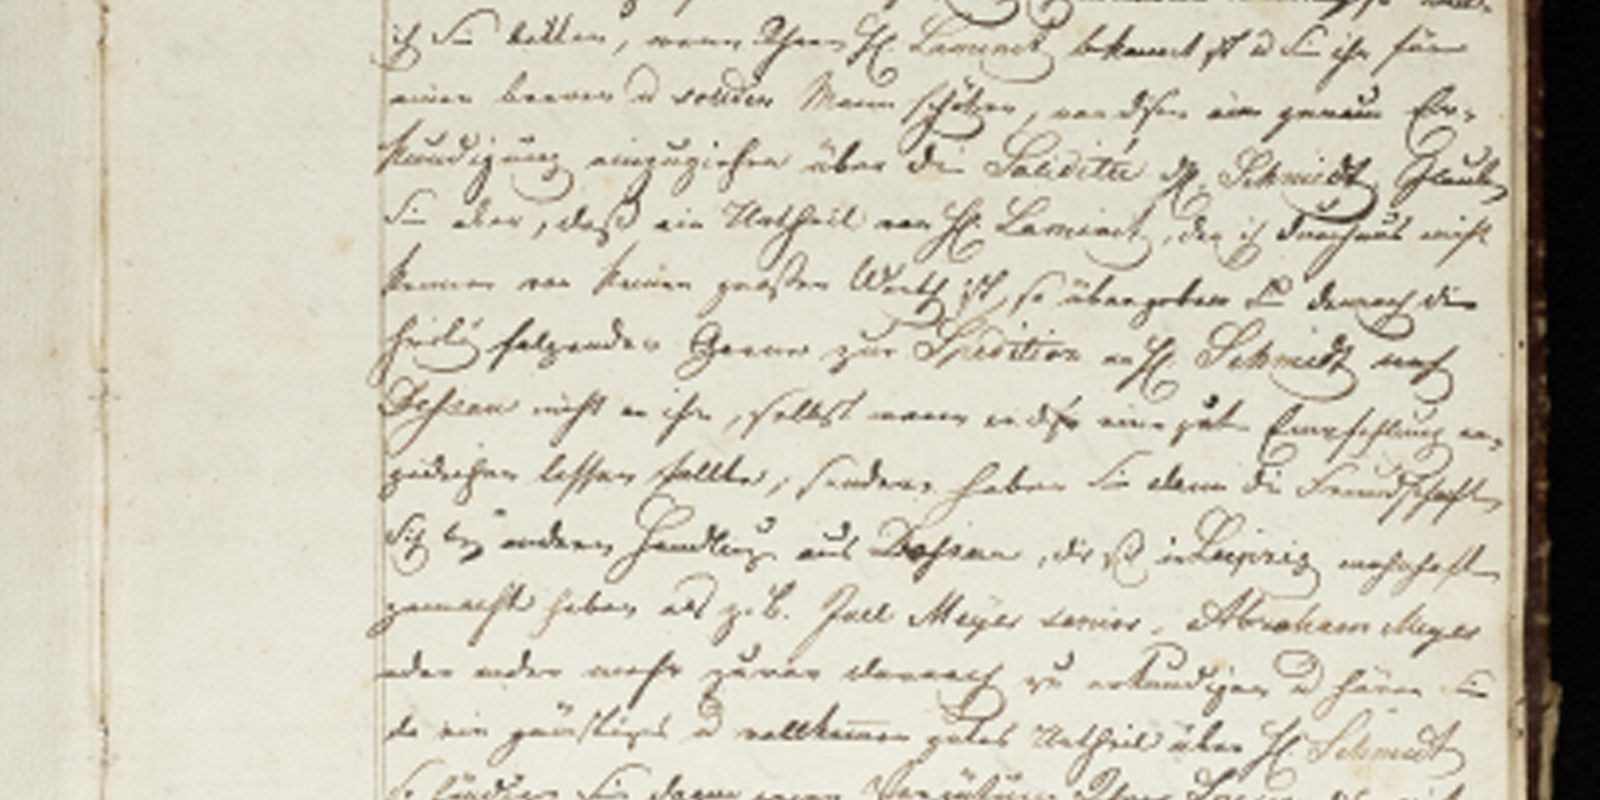 ich Sie bitten, wenn Ihnen H. Laminit bekannt ist u Sie ihn für
einen braven u soliden Mann schätzen, von diesem eine genaue Er-
kundigung einzuziehen über die Solidität H. Schmidt Glauben
Sie aber, daß ein Urtheil von H. Laminit, den ich durchaus nicht
kenne von keinen großen Werth ist, so übergeben Sie demnach die
folgenden Garne zur Spedition an H. Schmidt nach
Dessau nicht an ihn, selbst wenn er diese eine gute Empfehlung an-
gedeihen lassen sollte, sondern haben Sie dann die Freundschaft,
sich bey andern Handlung aus Dessau, die sich in Leipzig wohnhaft
gemacht haben als z.B. Joel Meyer senior, Abraham Meyer
oder andere mehr zuvor darnach zu erkundigen u hören Sie
da ein günstiges u vollkommen gutes Urtheil über H. Schmidt
so Sie dann